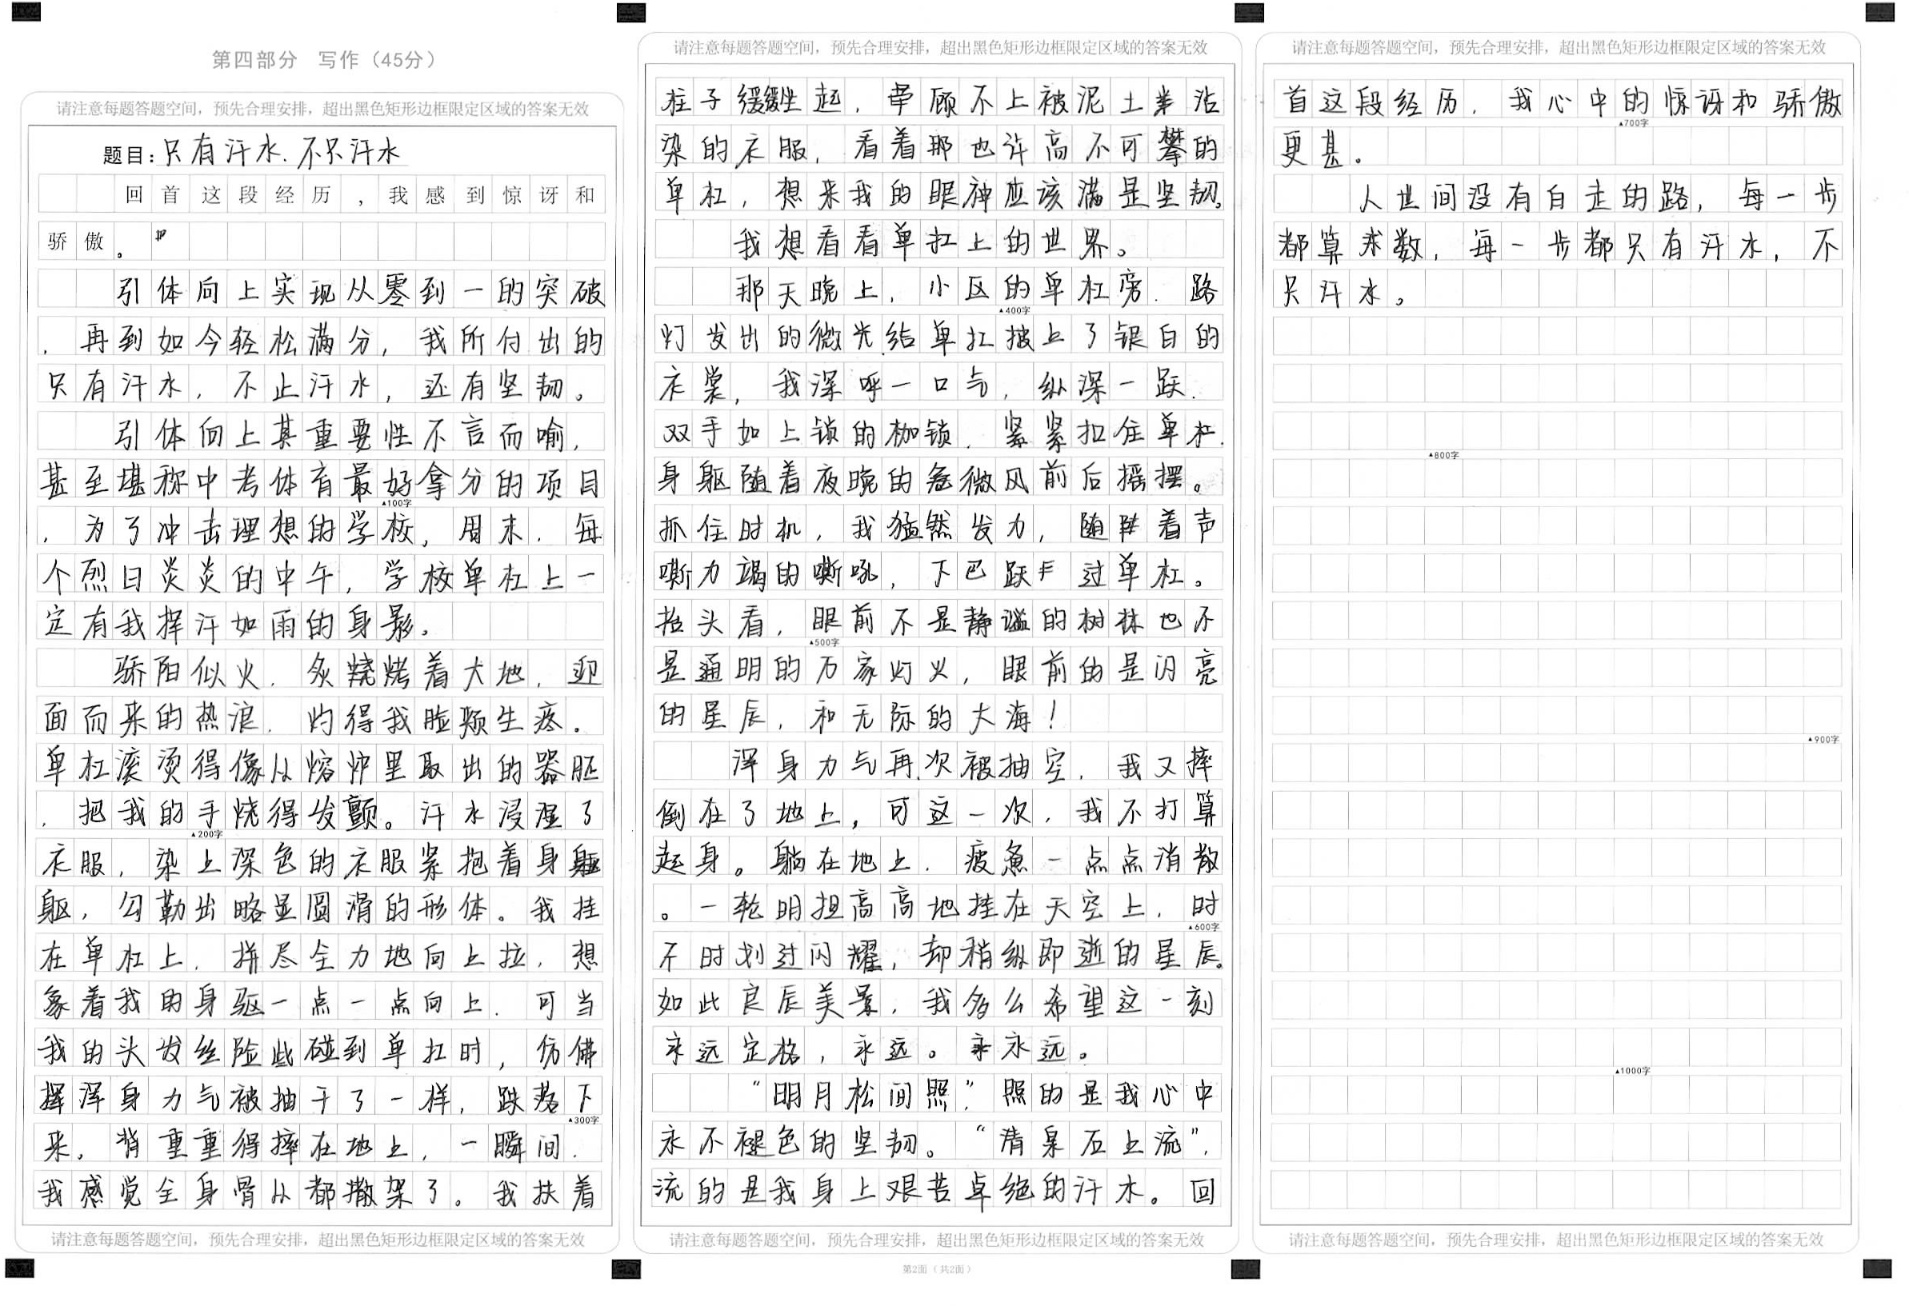 第四部分 写作（45分）
请注意每题答题空间，预先合理安排，超出黑色矩形边框限定区域的答案无效
题目：只有汗水，不只汗水
回首这段经历，我感到惊讶和
骄傲。
引体向上实现从零到一的突破
，再到如今轻松满分，我所付出的
只有汗水，不止汗水，还有坚韧。
引体向上其重要性不言而喻，
甚至堪称中考体育最好拿分的项目
▲100字
，为了冲击理想的学校，周末，每
个烈日炎炎的中午，学校单杠上一
定有我挥汗如雨的身影。
骄阳似火，炙烧烤着大地，迎
面而来的热浪，灼得我脸颊生疼。
单杠滚烫得像从熔炉里取出的器胚
，把我的手烧得发颤。汗水浸湿了
▲200字
衣服，染上深色的衣服紧抱着身
躯，勾勒出略显圆滑的形体。我挂
在单杠上，拼尽全力地向上拉，想
象着我的身躯一点一点向上，可当
我的头发丝险些碰到单杠时，仿佛
浑身力气被抽干了一样，跌落下
▲300字
来，背重重得摔在地上，一瞬间，
我感觉全身骨从都撒架了。我扶着
请注意每题答题空间，预先合理安排，超出黑色矩形边框限定区域的答案无效
请注意每题答题空间，预先合理安排，超出黑色矩形边框限定区域的答案无效
柱子缓缓坐起，顾不上被泥土沾
染的衣服，看着那也许高不可攀的
单杠，想来我的眼神应该满是坚韧。
我想看看单杠上的世界。
那天晚上，小区的单杠旁，路
▲400字
灯发出的微光给单杠披上了银白的
衣裳，我深呼一口气，纵深一跃，
双手如上锁的枷锁，紧紧扣住单杠，
身躯随着夜晚的微风前后摇摆。
抓住时机，我猛然发力，随着声
嘶力竭的嘶吼，下巴跃过单杠。
抬头看，眼前不是静谧的树林也不
▲500字
是通明的万家灯火，眼前的是闪亮
的星辰，和无际的大海！
浑身力气再次被抽空，我又摔
倒在了地上，可这一次，我不打算
起身。躺在地上，疲惫一点点消散
。一轮明担高高地挂在天空上，时
▲600字
不时划过闪耀，却稍纵即逝的星辰。
如此良辰美景，我多么希望这一刻
永远定格，永远。永远。
“明月松间照”，照的是我心中
永不褪色的坚韧。“清泉石上流”，
流的是我身上艰苦卓绝的汗水。回
请注意每题答题空间，预先合理安排，超出黑色矩形边框限定区域的答案无效
第2面（共2面）
请注意每题答题空间，预先合理安排，超出黑色矩形边框限定区域的答案无效
首这段经历，我心中的惊讶和骄傲
▲700字
更甚。
人世间没有白走的路，每一步
都算求数，每一步都只有汗水，不
只汗水。
▲800字
▲900字
▲1000字
请注意每题答题空间，预先合理安排，超出黑色矩形边框限定区域的答案无效